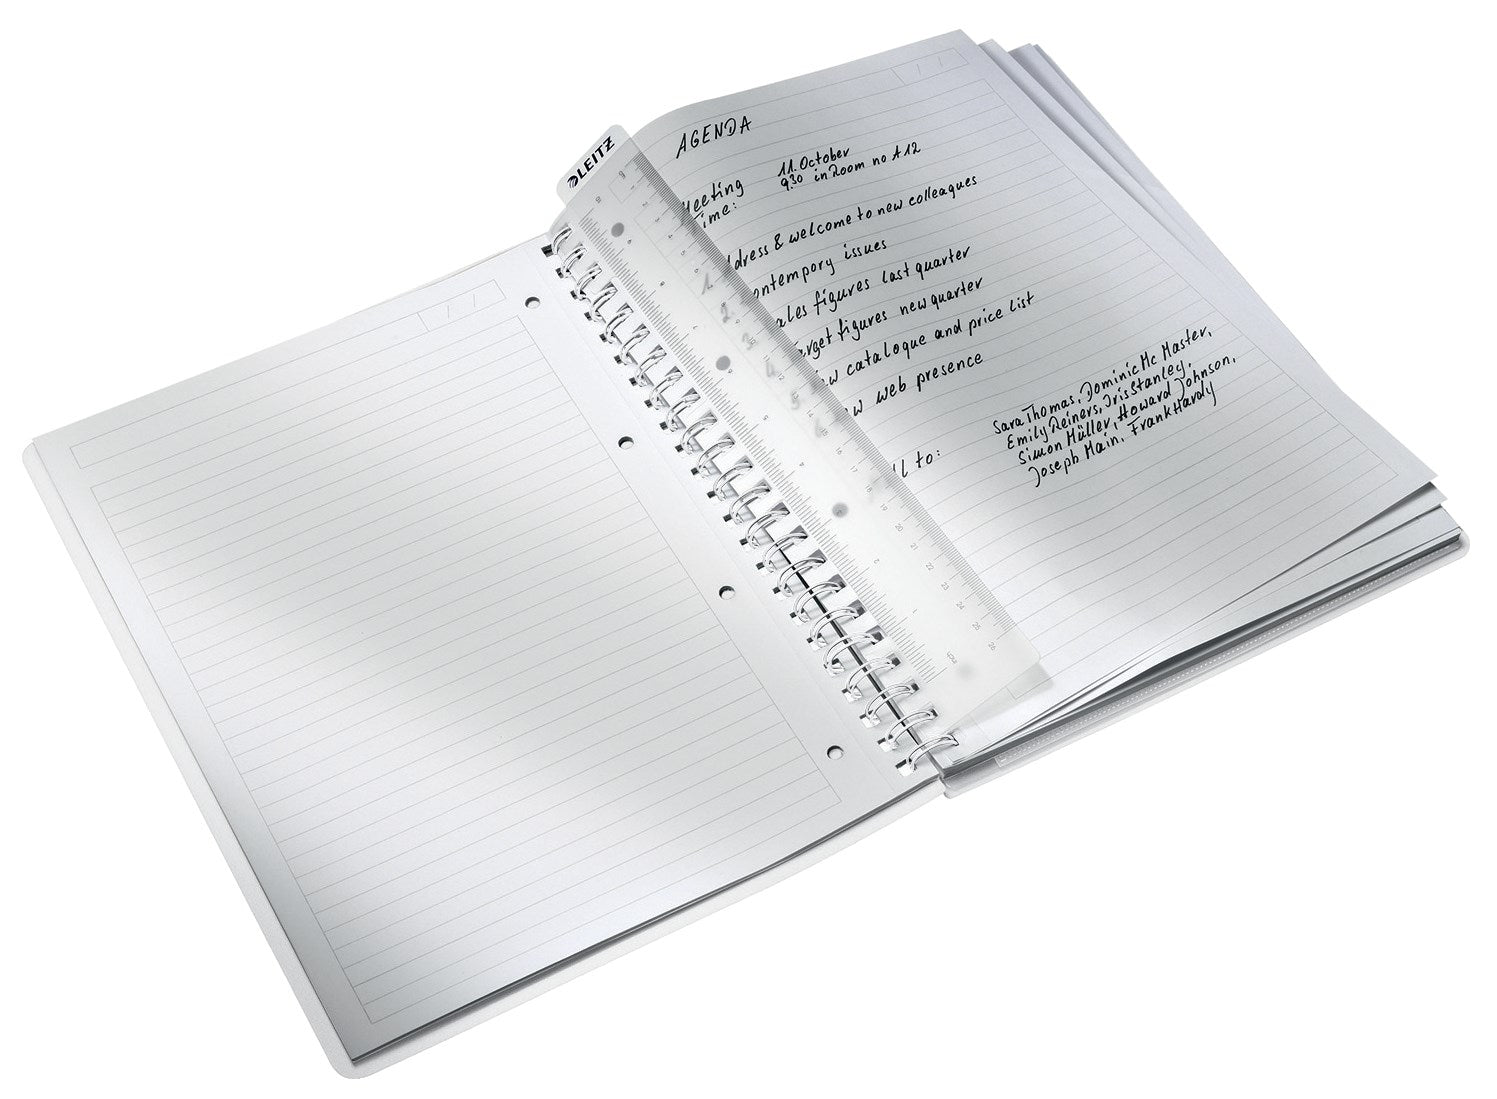 LEITZ
AGENDA
Meeting 11. October
Time: 9.30 in Room no A12
1. ddress & welcome to new colleagues
2. ontempory issues
3. ales figures last quarter
4. arget figures new quarter
5. ew catalogue and price list
ew web presence
ll to: Sara Thomas, Dominic Mc Master,
Emily Reiners, Iris Stanley,
Simon Müller, Howard Johnson,
Joseph Main, Frank Hardy